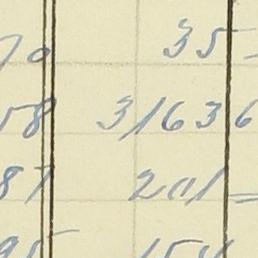 70 35
58 31636
87 201
95 154